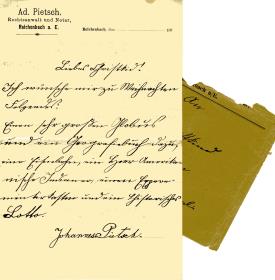 Ad. Pietsch,
Rechtsanwalt und Notar,
Reichenbach u. E.
Reichenbach, den 189
Liebes Christkind!
Ich wünsche mir zu Weihnachten
Folgendes:
Einen sehr großen Globus
und ein Geografiebuch dazu,
eine Eisenbahn, ein Heer Amerika-
nische Indianer, einen
und ein Historisches
Lotto.
Johannes Pietsch.
An